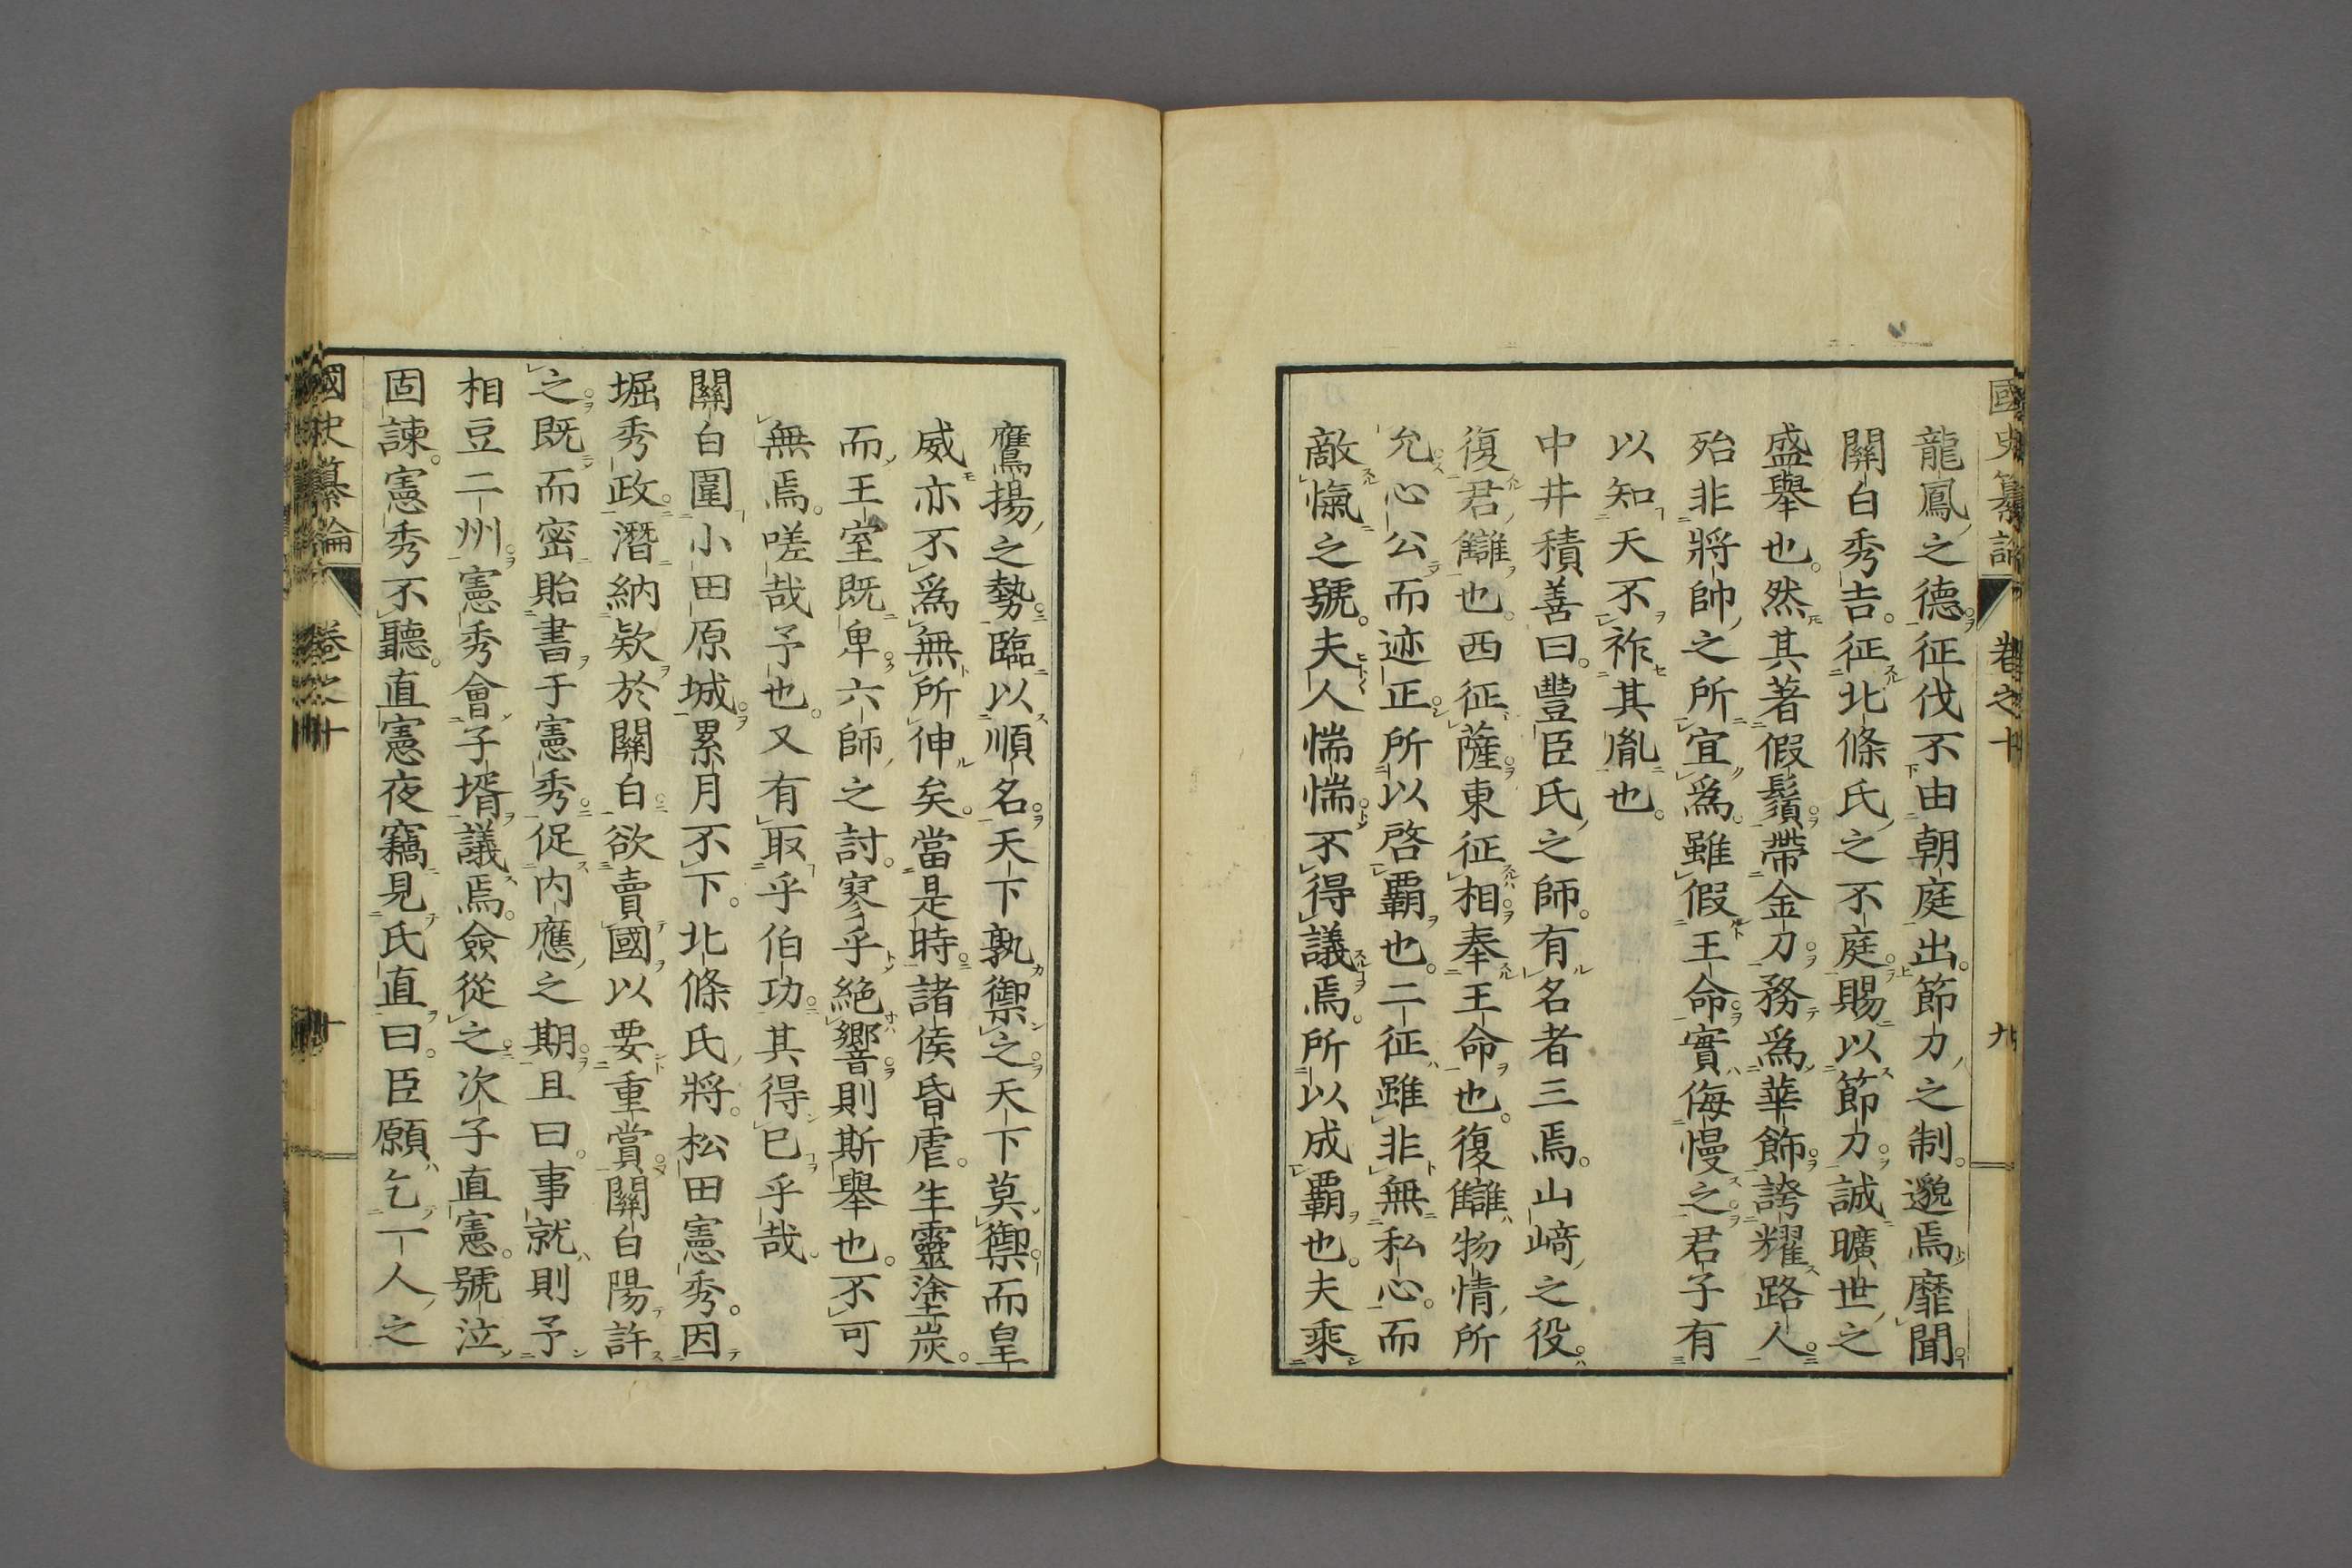 國史纂論 卷之十 九
龍鳳之德征伐不由朝庭出。節刀之制。邈焉靡聞
關白秀吉。征北條氏之不庭賜以節刀。誠曠世之
盛舉也。然其著假鬚帶金刀務爲華飾誇耀路人
殆非將帥之所宜爲。雖假王命實侮慢之君子有
以知天不祚其胤也。
中井積善曰。豐臣氏之師。有名者三焉。山﨑之役。
復君讎也。西征薩東征相奉王命也。復讎物情所
允心公而迹正所以啓覇也。二征雖非無私心。而
敵愾之號。夫人惴惴不得議焉。所以成覇也。夫乘
鷹揚之勢臨以順名天下孰禦之天下莫禦而皇
威亦不爲無所伸矣。當是時諸侯昏虐。生靈塗炭。
而王室既卑六師之討。寥乎絕響則斯舉也。不可
無焉。嗟哉予也。又有取乎伯功其得已乎哉。
關白圍小田原城累月不下。北條氏將。松田憲秀。因
堀秀政。潛納欵於關白欲賣國以要重賞。關白陽許
之既而密貽書于憲秀促内應之期且曰。事就則予
相豆二州。憲秀會子壻議焉。僉從之次子直憲。號泣
固諫。憲秀不聽。直憲夜竊見氏直曰。臣願乞一人之
國史纂論 卷之十 十